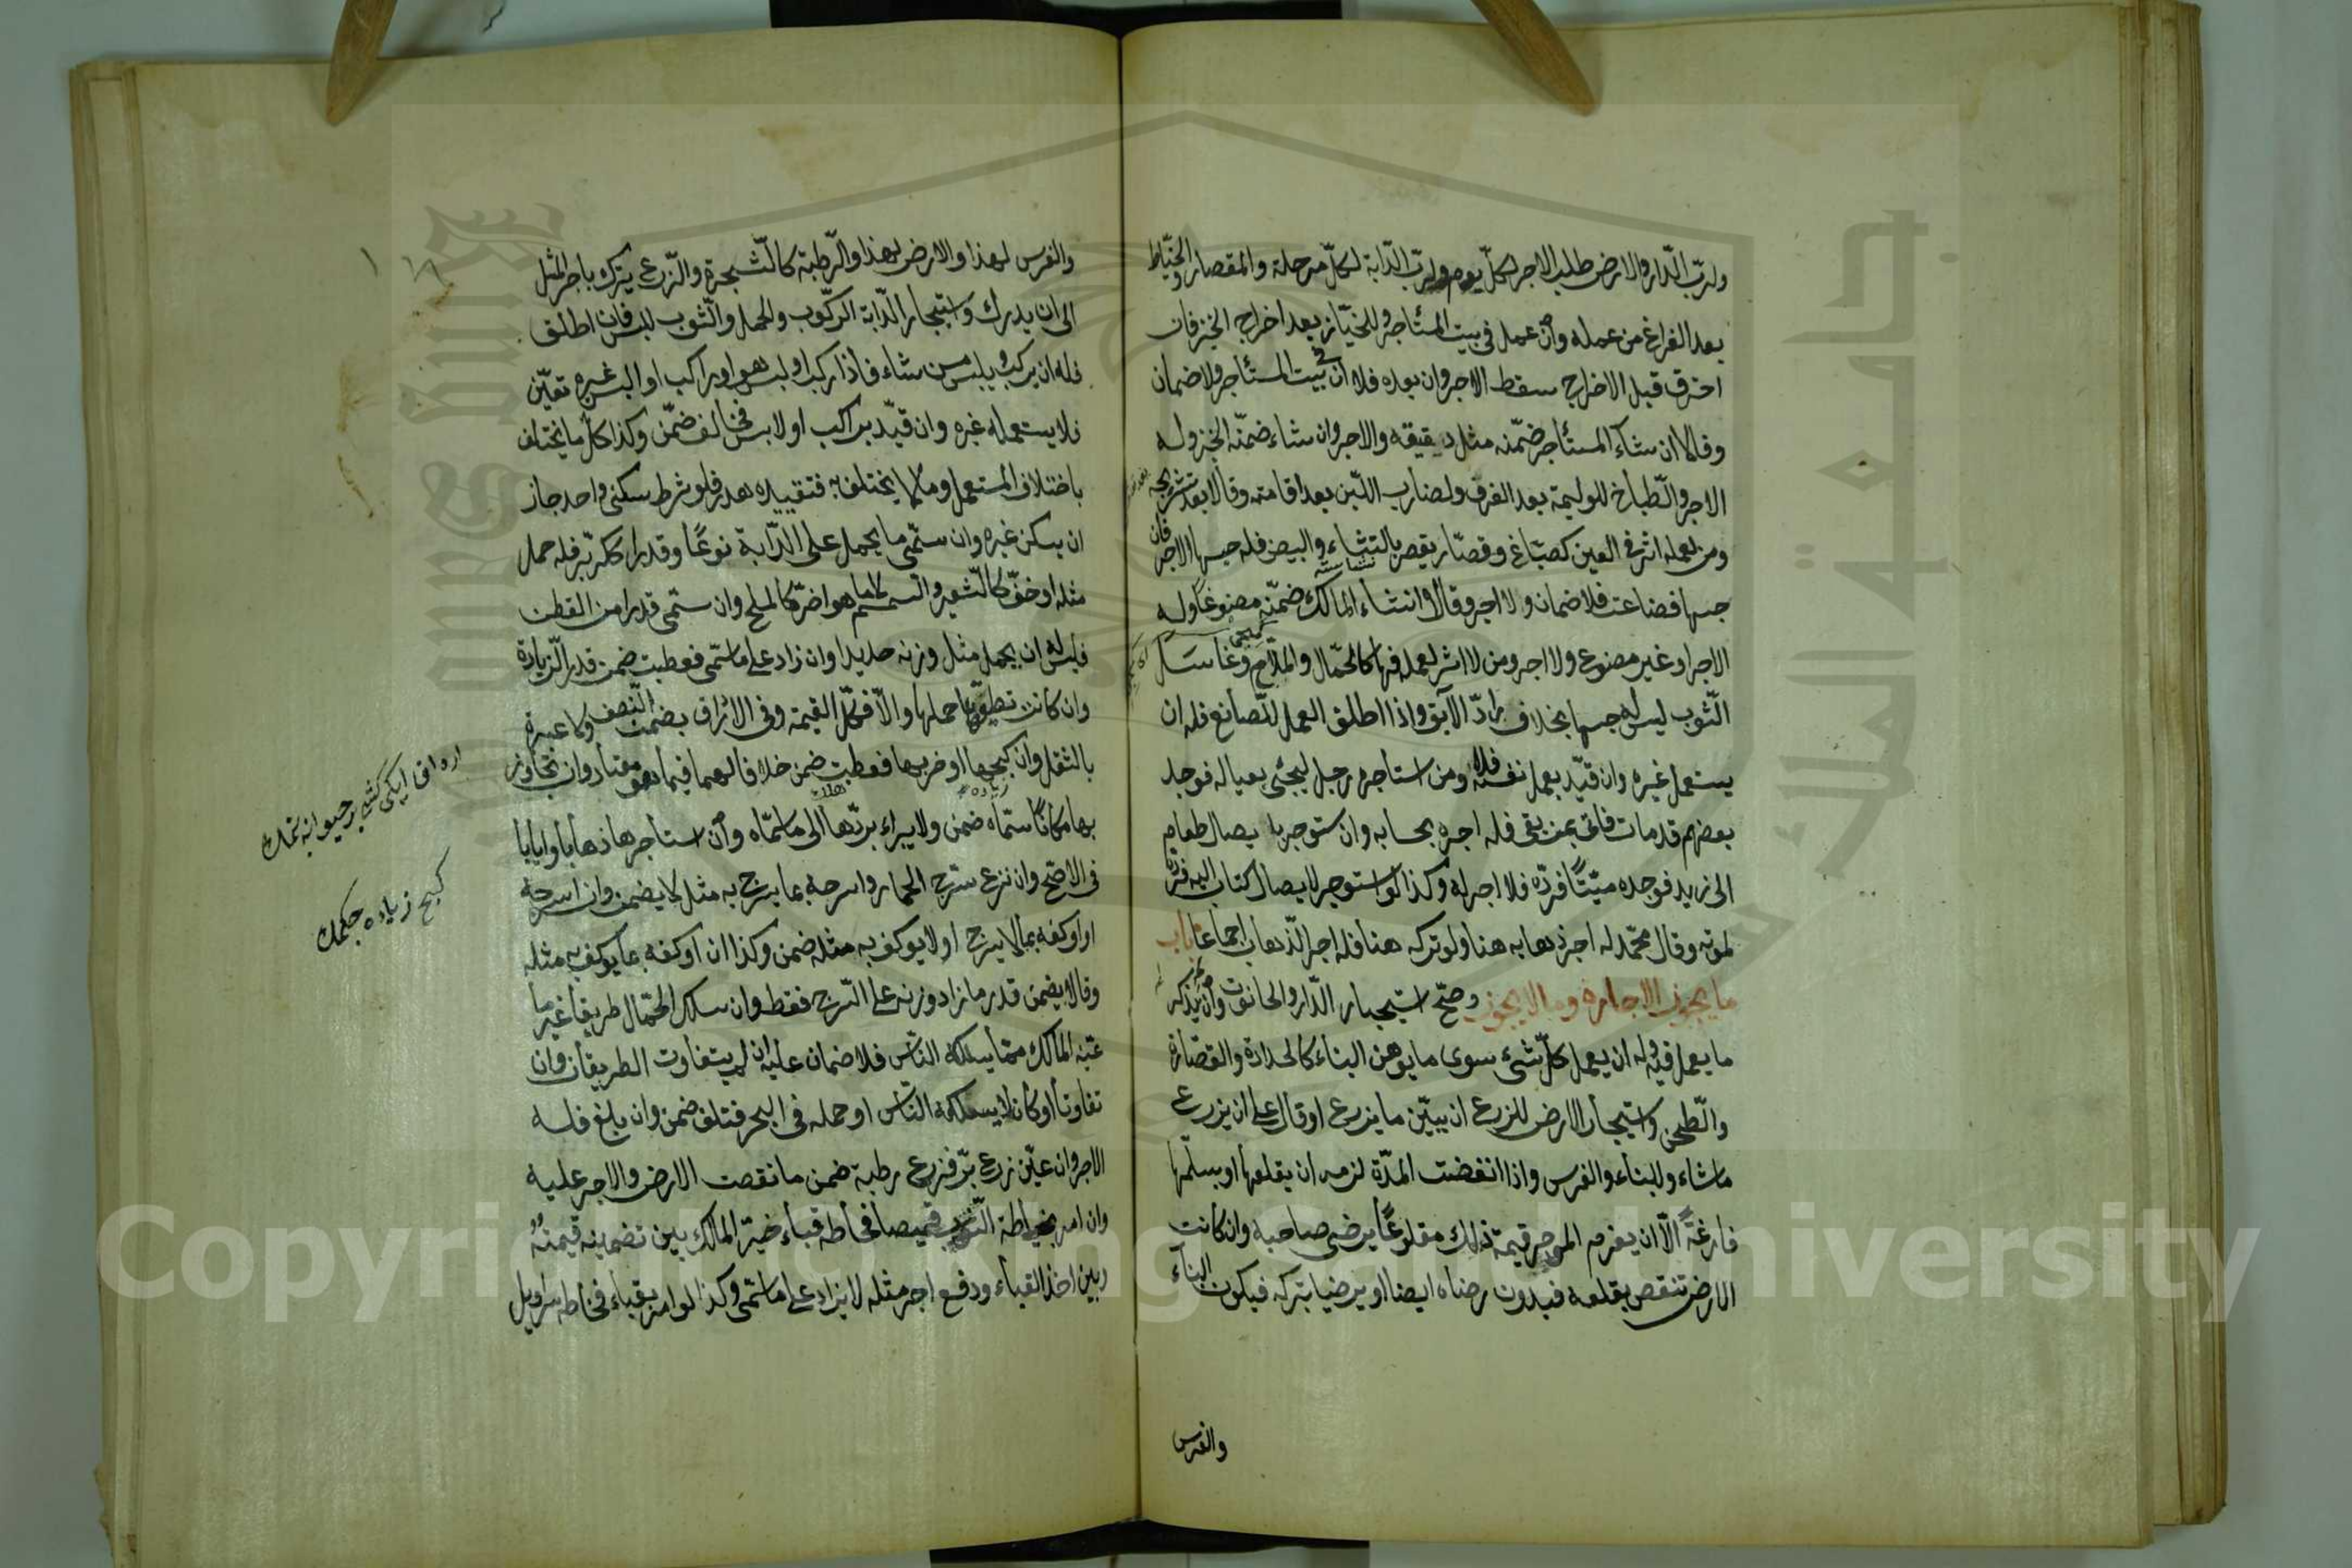 ولرب الدار والارض طلب الاجر لكل يوم ولرب الدابة لكل مرحلة والقصار والخياط
بعد الفراغ من عمله وان عمل في بيت المستأجر وللخباز بعد اخراج الخبز فان
احترق قبل الاخراج سقط الاجر وان بعده فلا ان في بيت المستأجر ولا ضمان
وقالا ان شاء المستأجر ضمنه مثل دقيقه ولا اجر وان شاء ضمنه الخبز وله
الاجر وللطباخ للوليمة بعد الغرف ولضارب اللبن بعد اقامته وقالا بعد تشريجه
ومن لعمله اثر في العين كصباغ وقصار يقصر بالنشاء والبيض فله حبسها للاجر فان
حبسها فضاعت فلا ضمان ولا اجر وقالا ان شاء المالك ضمنه مصنوعا وله
الاجر او غير مصنوع ولا اجر ومن لا اثر لعمله فيها كالحمال والملاح وغاسل
الثوب ليس له حبسها بخلاف راد الآبق واذا اطلق العمل للصانع فله ان
يستعمل غيره وان قيد بعمل نفسه فلا ومن استأجره رجل ليجئ بعياله فوجد
بعضهم قد مات فاتى بمن بقي فله اجره بحسابه وان ستوجر لا يصال طعام
الى زيد فوجده ميتا فرده فلا اجر له وكذا لو استوجر لا يصال كتاب اليه فرده
لموته وقال محمد له اجر ذهابه هنا ولو تركه هناك فله اجر الذهاب اجماعا باب
ما يجوز الاجارة وما لا يجوز وصح استيجار الدار والحانوت وان لم يذكر
ما يعمل فيه وله ان يعمل كل شئ سوى ما يوهن البناء كالحدادة والقصارة
والطحن واستيجار الارض للزرع ان بين ما يزرع او قال على ان يزرع
ما شاء وللبناء والغرس واذا انقضت المدة لزمه ان يقلعها ويسلمها
فارغة الا ان يغرم الموجر قيمة ذلك مقلوعا برضى صاحبه وان كانت
الارض تنقص بقلعه فبدون رضاه ايضا او يرضيا بتركه فيكون البناء
والغرس
والغرس لهذا والارض لهذا والرطبة كالشجرة والزرع يترك باجر المثل
الى ان يدرك واستيجار الدابة للركوب والحمل والثوب للبس فان اطلق
فله ان يركب ويلبس من شاء فاذا ركب او لبس هو او اركب او البس غيره تعين
فلا يستعمله غيره وان قيد براكب او لابس فخالف ضمن وكذا كل ما يختلف
باختلاف المستعمل وما لا يختلف به فتقييده هدر فلو شرط سكنى واحد جاز
ان يسكن غيره وان سمى ما يحمل على الدابة نوعا وقدرا ككر بر فله حمل
مثله او خف كالشعير والسمسم لا ما هو اضر كالملح وان سمى قدرا من القطن
فليس له ان يحمل مثل وزنه حديدا وان زاد على ما سمى فعطبت ضمن قدر الزيادة
وان كانت تطيق حملها والا فكل القيمة وفي الارداف يضمن النصف ولا عبرة
بالثقل وان كبحها او ضربها فعطبت ضمن خلافا لهما فيما هو معتاد وان تجاوز
بها مكانا سماه ضمن ولا يبراء بردها الى ما سماه وان استأجرها ذهابا وايابا
في الاصح وان نزع سرج الحمار واسرجه بما يسرج به مثله لا يضمن وان اسرجه
او اوكفه بما لا يسرج او لا يوكف به مثله ضمن وكذا ان اوكفه بما يوكف به مثله
وقالا يضمن قدر ما زاد وزنه على السرج فقط وان سلك الحمال طريقا غير ما
عينه المالك مما يسلكه الناس فلا ضمان عليه ان لم يتفاوت الطريقان وان
تفاوتا او كان لا يسلكه الناس او حمله في البحر فتلف ضمن وان بلغ فله
الاجر وان عين زرع بر فزرع رطبة ضمن ما نقصت الارض والاجر عليه
وان امر بخياطة الثوب قميصا فخاطه قباء خير المالك بين تضمينه قيمته
وبين اخذ القباء ودفع اجر مثله لا يزاد على ما سمى وكذا لو امر بقباء فخاطه سراويل
ارداف ايكي كشي بر حيوانه بنمك
كبح زياده چكمك
Copyright © King Saud University